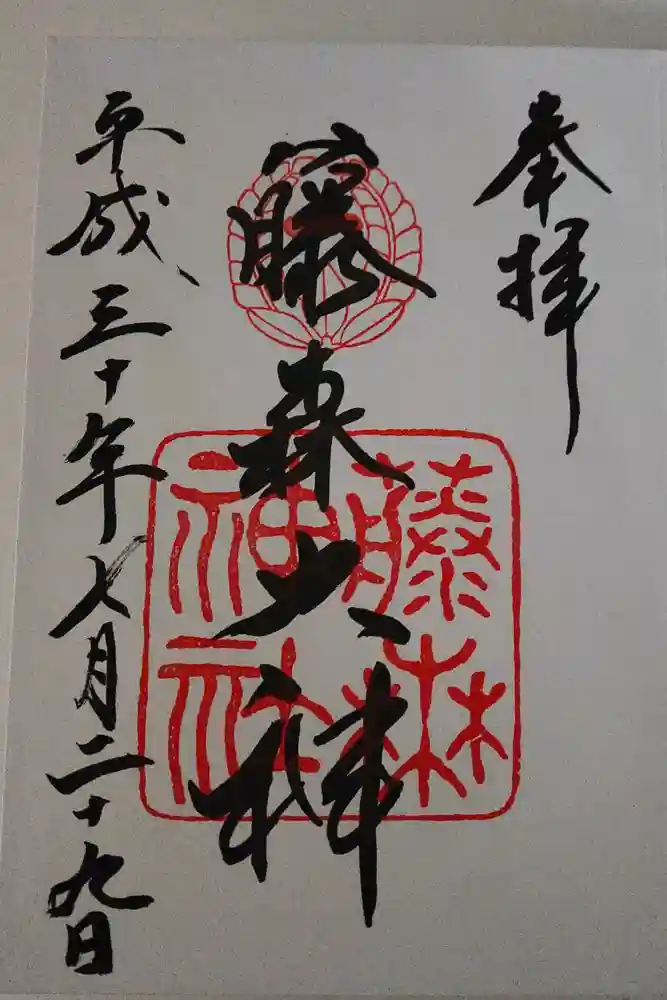 奉拝
藤森大神
藤森
神社
平成三十年七月二十九日